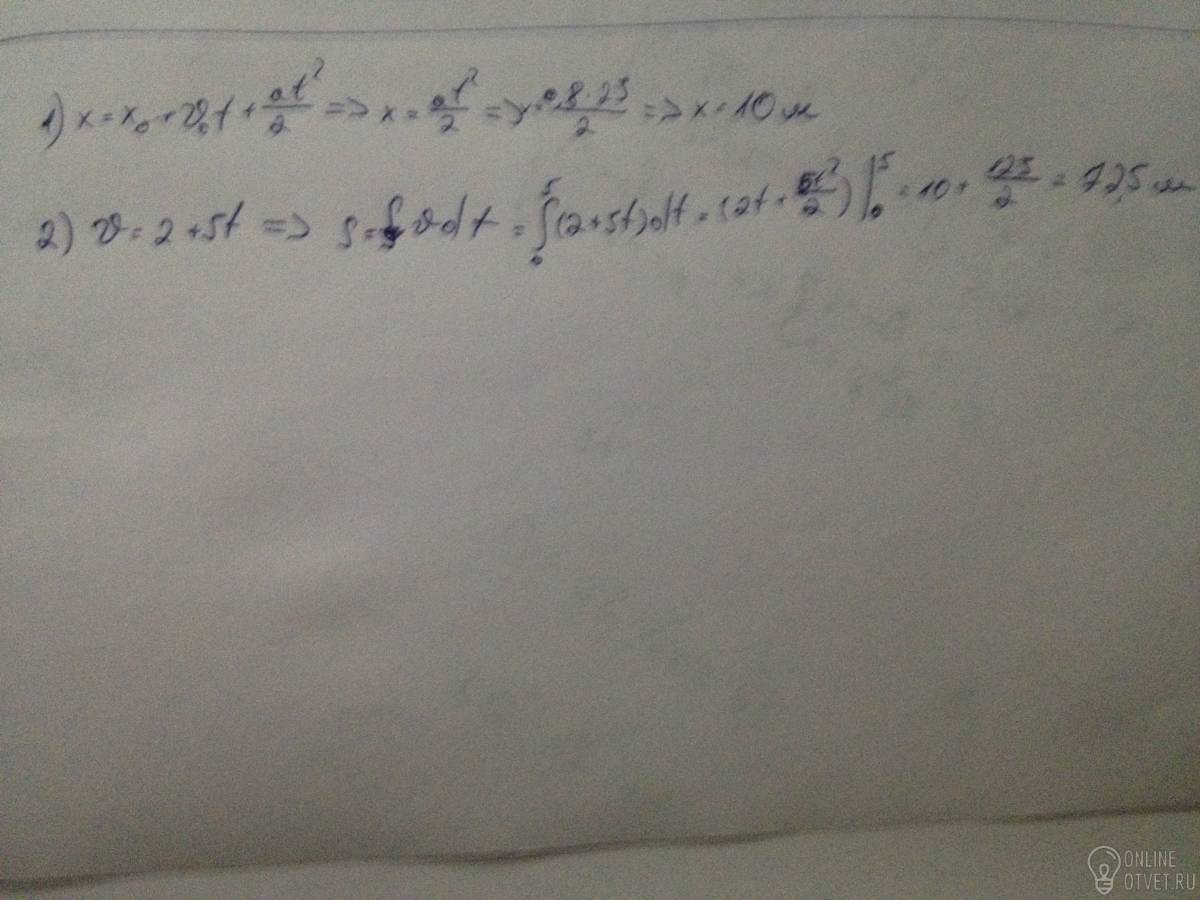 1) x = x₀ + v₀t + at²/2 => x = at²/2 => x = 0,8·25/2 => x = 10 м
2) v = 2 + 5t => S = ∫ v dt = ∫₀⁵ (2+5t)dt = (2t + 5t²/2) |₀⁵ = 10 + 125/2 = 72,5 м
ONLINE
OTVET.RU